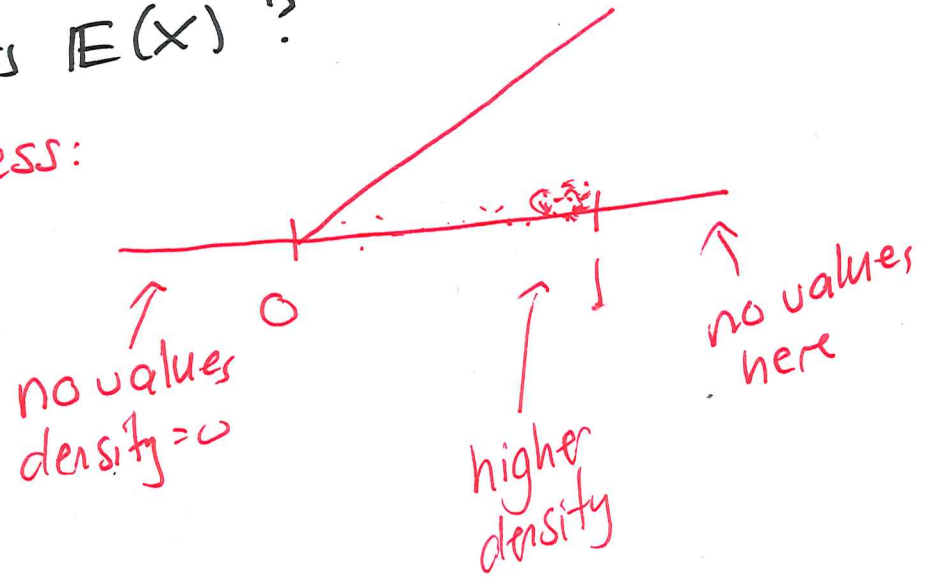 s E(X) ?
ess:
0
1
no values
density=0
higher
density
no values
here